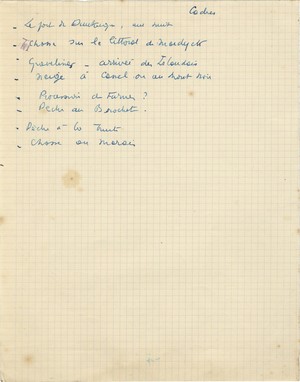 Cadres
- Le port de Dunkerque, une nuit
- Chasse sur le littoral de Mardyck
- Gravelines - arrivée des Islandais
- Neige à Cassel ou au Mont Noir
- Procession de Furnes ?
- Pêche au Brochet.
- Pêche à la Truite
- Chasse au marais